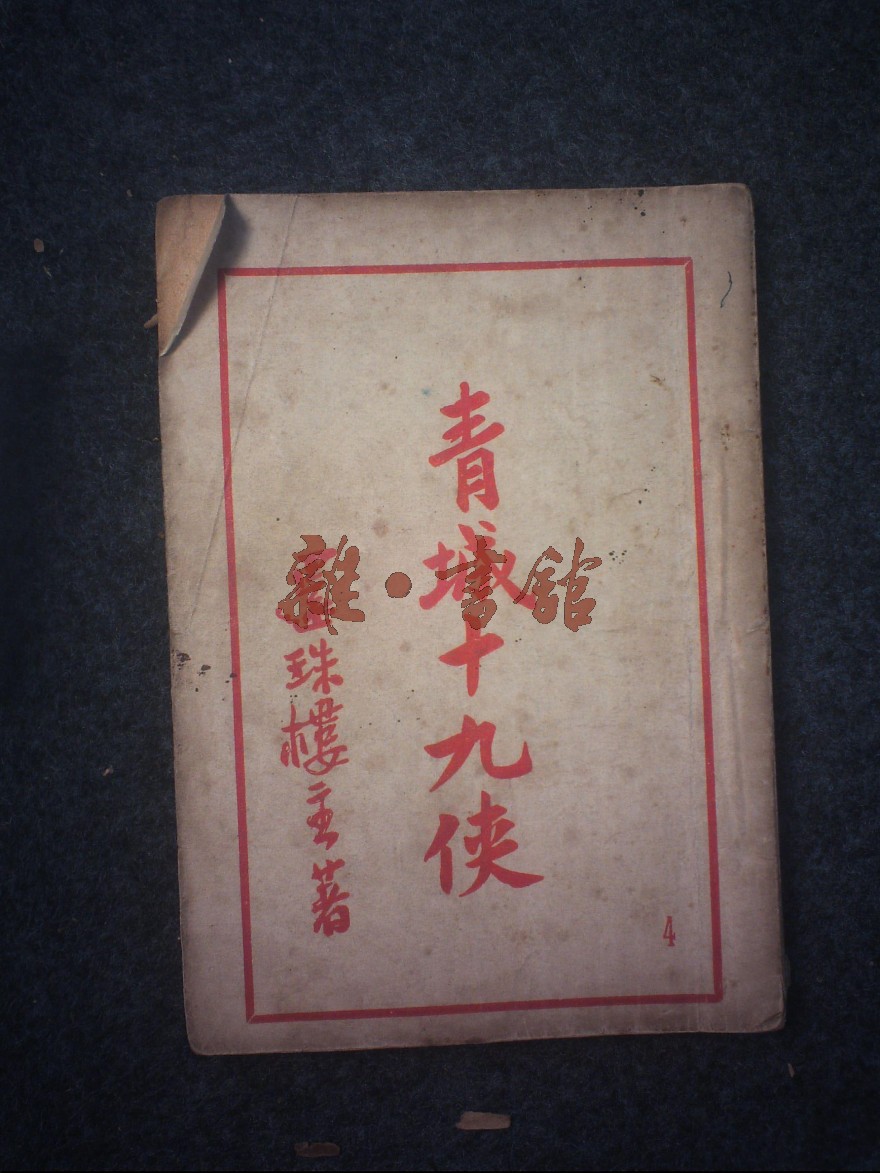 青城十九俠
還珠樓主著
4
雜·書館